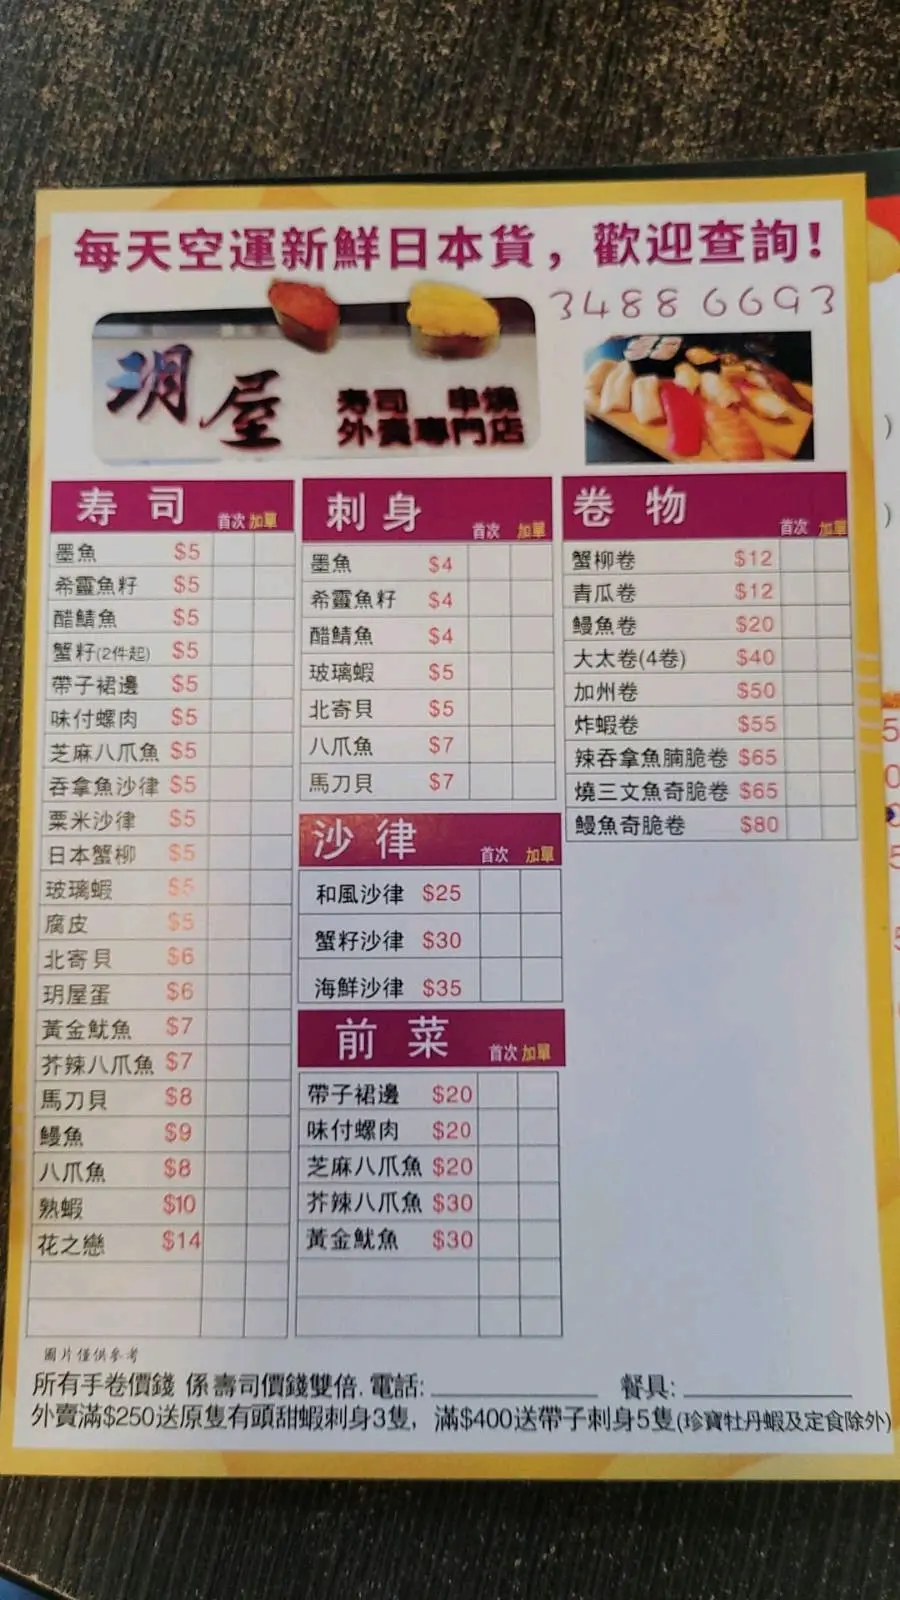 每天空運新鮮日本貨，歡迎查詢!
3488 6693
玥屋
寿司 串燒
外賣專門店
寿司 首次 加單
墨魚 $5
希靈魚籽 $5
醋鯖魚 $5
蟹籽(2件起) $5
帶子裙邊 $5
味付螺肉 $5
芝麻八爪魚 $5
吞拿魚沙律 $5
粟米沙律 $5
日本蟹柳 $5
玻璃蝦 $5
腐皮 $5
北寄貝 $6
玥屋蛋 $6
黃金魷魚 $7
芥辣八爪魚 $7
馬刀貝 $8
鰻魚 $9
八爪魚 $8
熟蝦 $10
花之戀 $14
刺身 首次 加單
墨魚 $4
希靈魚籽 $4
醋鯖魚 $4
玻璃蝦 $5
北寄貝 $5
八爪魚 $7
馬刀貝 $7
沙律 首次 加單
和風沙律 $25
蟹籽沙律 $30
海鮮沙律 $35
前菜 首次 加單
帶子裙邊 $20
味付螺肉 $20
芝麻八爪魚 $20
芥辣八爪魚 $30
黃金魷魚 $30
卷物 首次 加單
蟹柳卷 $12
青瓜卷 $12
鰻魚卷 $20
大太卷(4卷) $40
加州卷 $50
炸蝦卷 $55
辣吞拿魚腩脆卷 $65
燒三文魚奇脆卷 $65
鰻魚奇脆卷 $80
圖片僅供參考
所有手卷價錢 係壽司價錢雙倍. 電話: 餐具:
外賣滿$250送原隻有頭甜蝦刺身3隻，滿$400送帶子刺身5隻(珍寶牡丹蝦及定食除外)